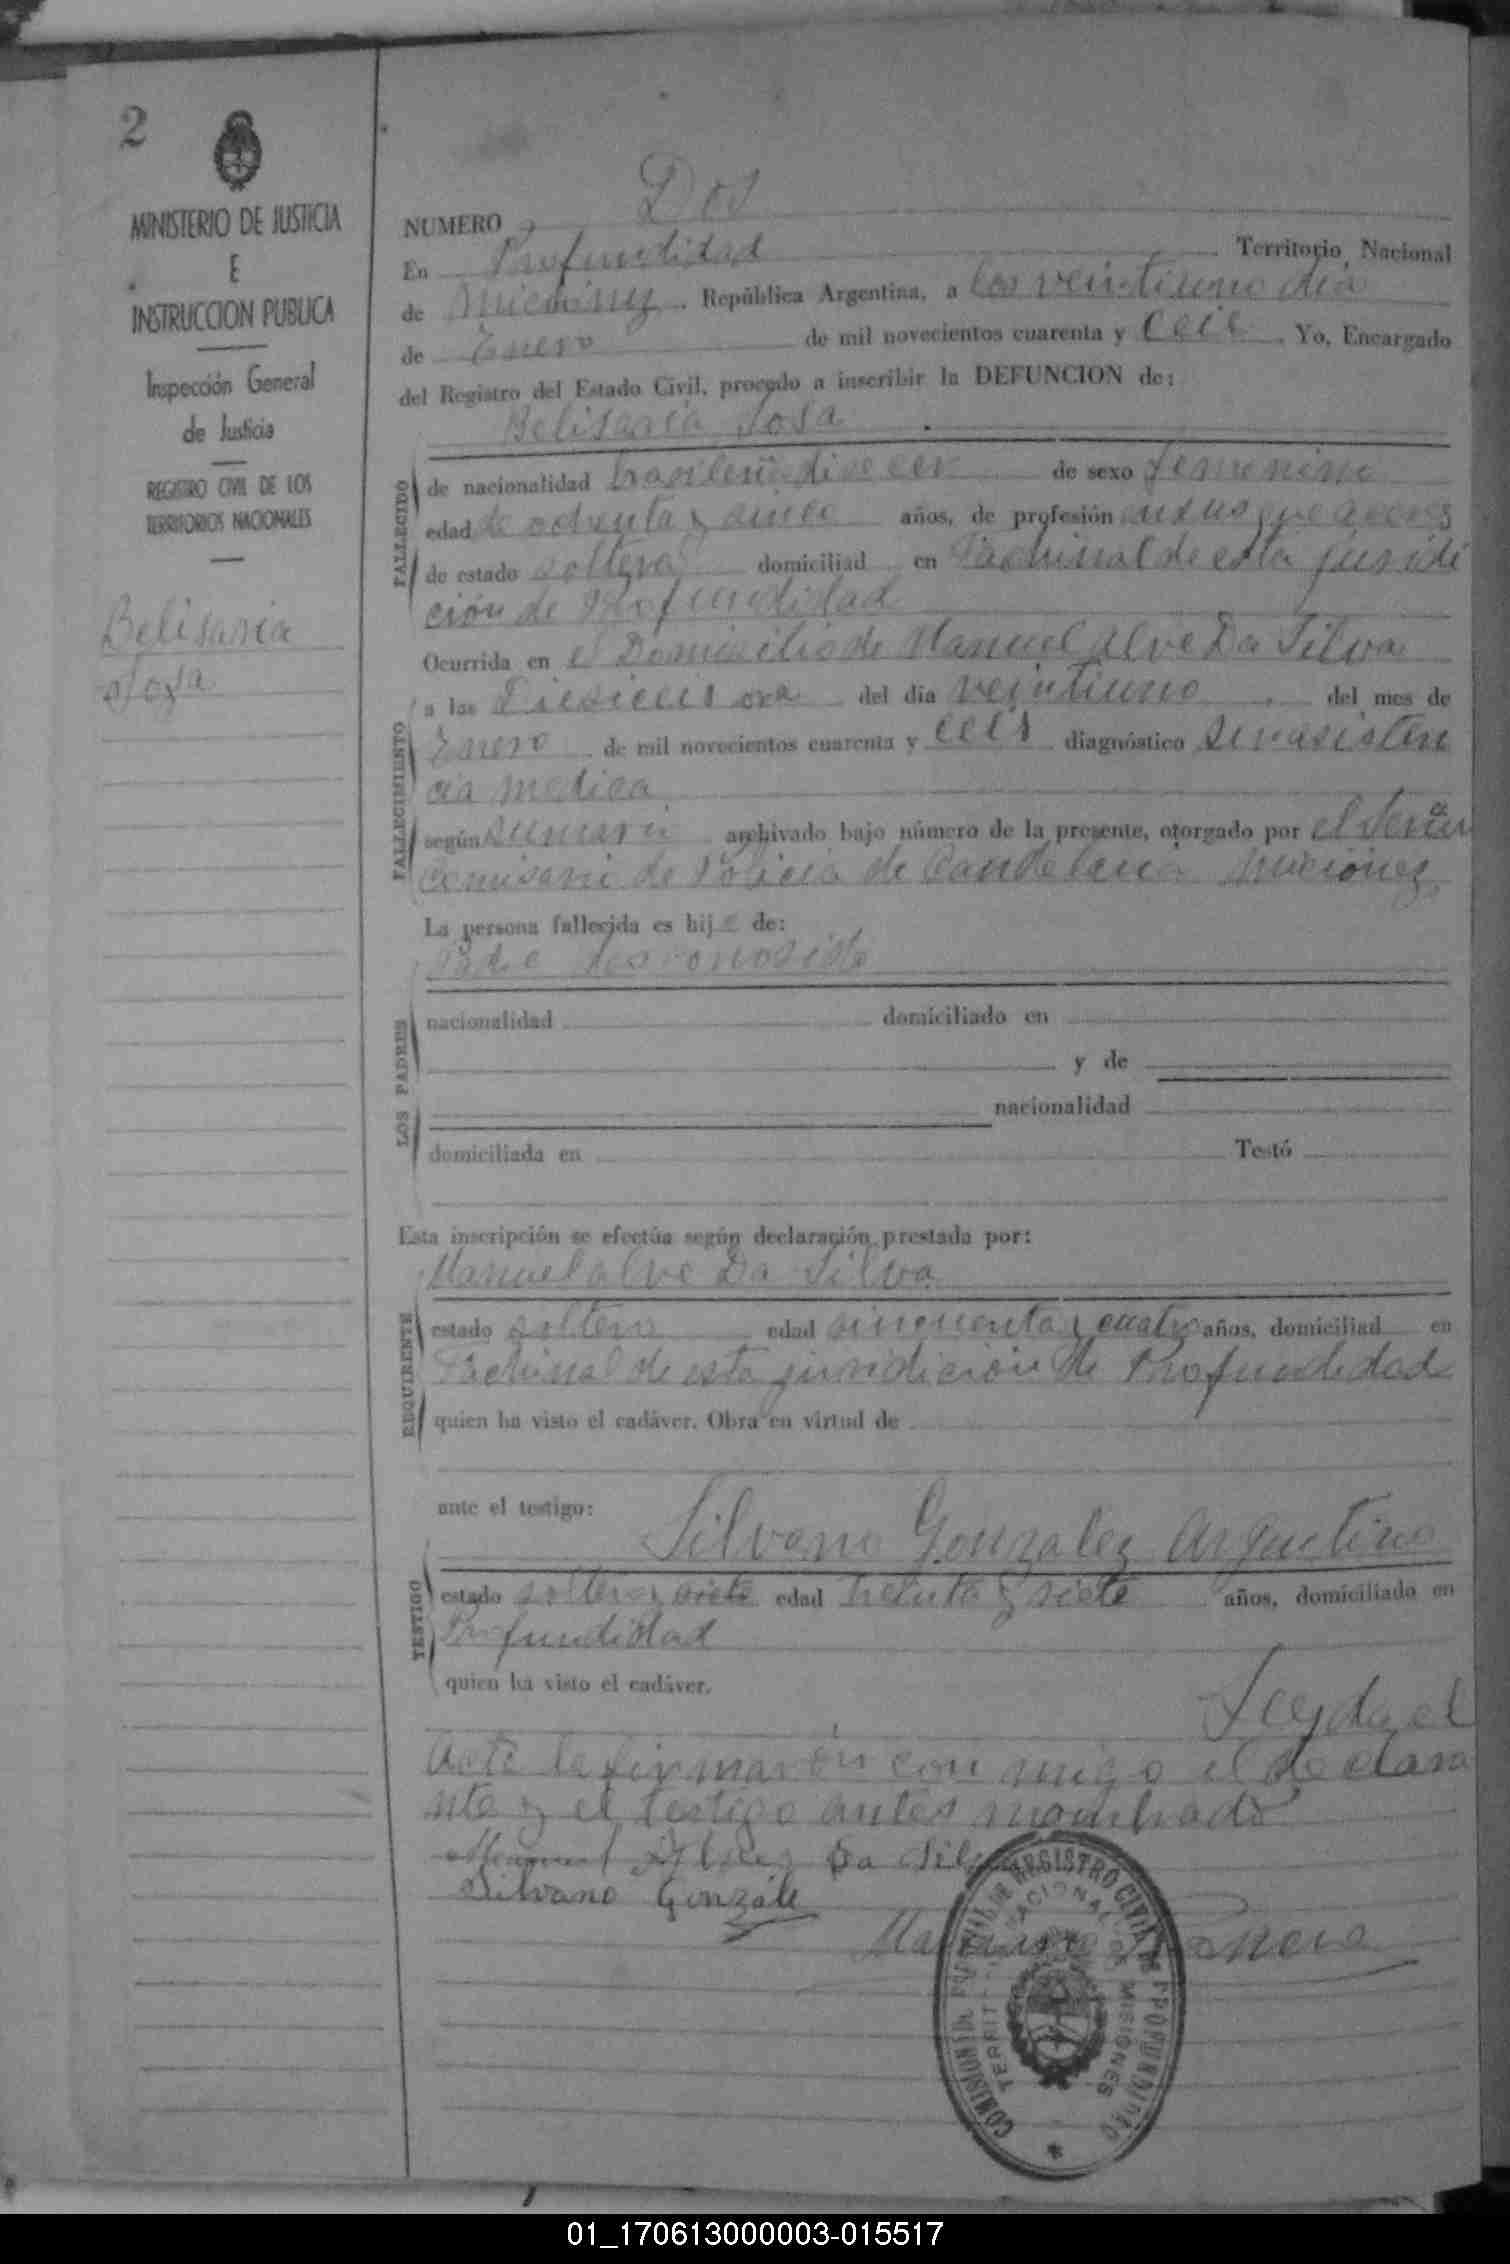 2
MINISTERIO DE JUSTICIA
E
INSTRUCCION PUBLICA
Inspección General
de Justicia
REGISTRO CIVIL DE LOS
TERRITORIOS NACIONALES
Belisaria
Sosa
NUMERO Dos
En Profundidad Territorio Nacional
de Miciónez, República Argentina, a los veintiuno dia
de Enero de mil novecientos cuarenta y Ceis. Yo, Encargado
del Registro del Estado Civil, procedo a inscribir la DEFUNCION de:
Belisaria Sosa
FALLECIDO
de nacionalidad de sexo femenino
edad de ochenta y cinco años, de profesión
de estado soltera domiciliad en Pachinal de esta juridi
ción de Profundidad
FALLECIMIENTO
Ocurrida en el Domicilio de Manuel Alve Da Silva
a las Diesiceis ora del dia veintiuno del mes de
Enero de mil novecientos cuarenta y ceis diagnóstico sin asisten
cia medica
según sumario archivado bajo número de la presente, otorgado por el Señor
Comisario de Policia de Candelaria Miciónez
La persona fallecida es hija de:
Padre desconosido
LOS PADRES
nacionalidad domiciliado en
y de
nacionalidad
domiciliada en Testó
Esta inscripción se efectúa según declaración prestada por:
Manuel Alve Da Silva
REQUIRENTE
estado soltero edad sinquenta y cuatro años, domiciliad en
Pachinal de esta juridición de Profundidad
quien ha visto el cadáver. Obra en virtud de
ante el testigo:
Silvano Gonzalez Argentino
TESTIGO
estado soltero y siete edad treinta y siete años, domiciliado en
Profundidad
quien ha visto el cadáver.
Leyda el
Acta la firmarón con migo el declara
nte y el testigo antes nombrado
Manuel Alvez Da Silva
Silvano Gonzále
COMISION AD. REGISTRO CIVIL DE PROFUNDIDAD
TERRIT. NACIONAL DE MISIONES
01_170613000003-015517